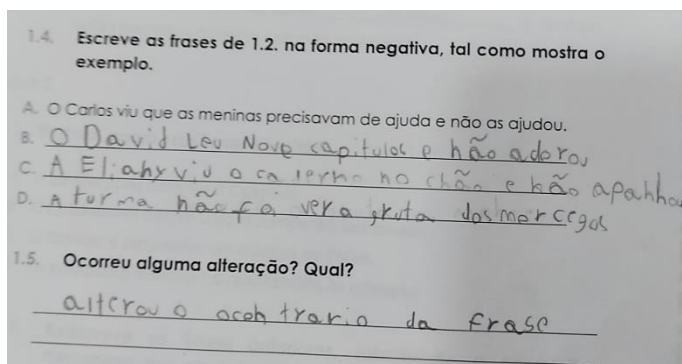 1.4. Escreve as frases de 1.2. na forma negativa, tal como mostra o
exemplo.
A. O Carlos viu que as meninas precisavam de ajuda e não as ajudou.
B. O David leu Nove capitulos e não adorou
C. A Eliany viu o caderno no chão e não apanhou
D. A turma não fo ver a gruta dos morcegos
1.5. Ocorreu alguma alteração? Qual?
alterou o ocontrario da frase